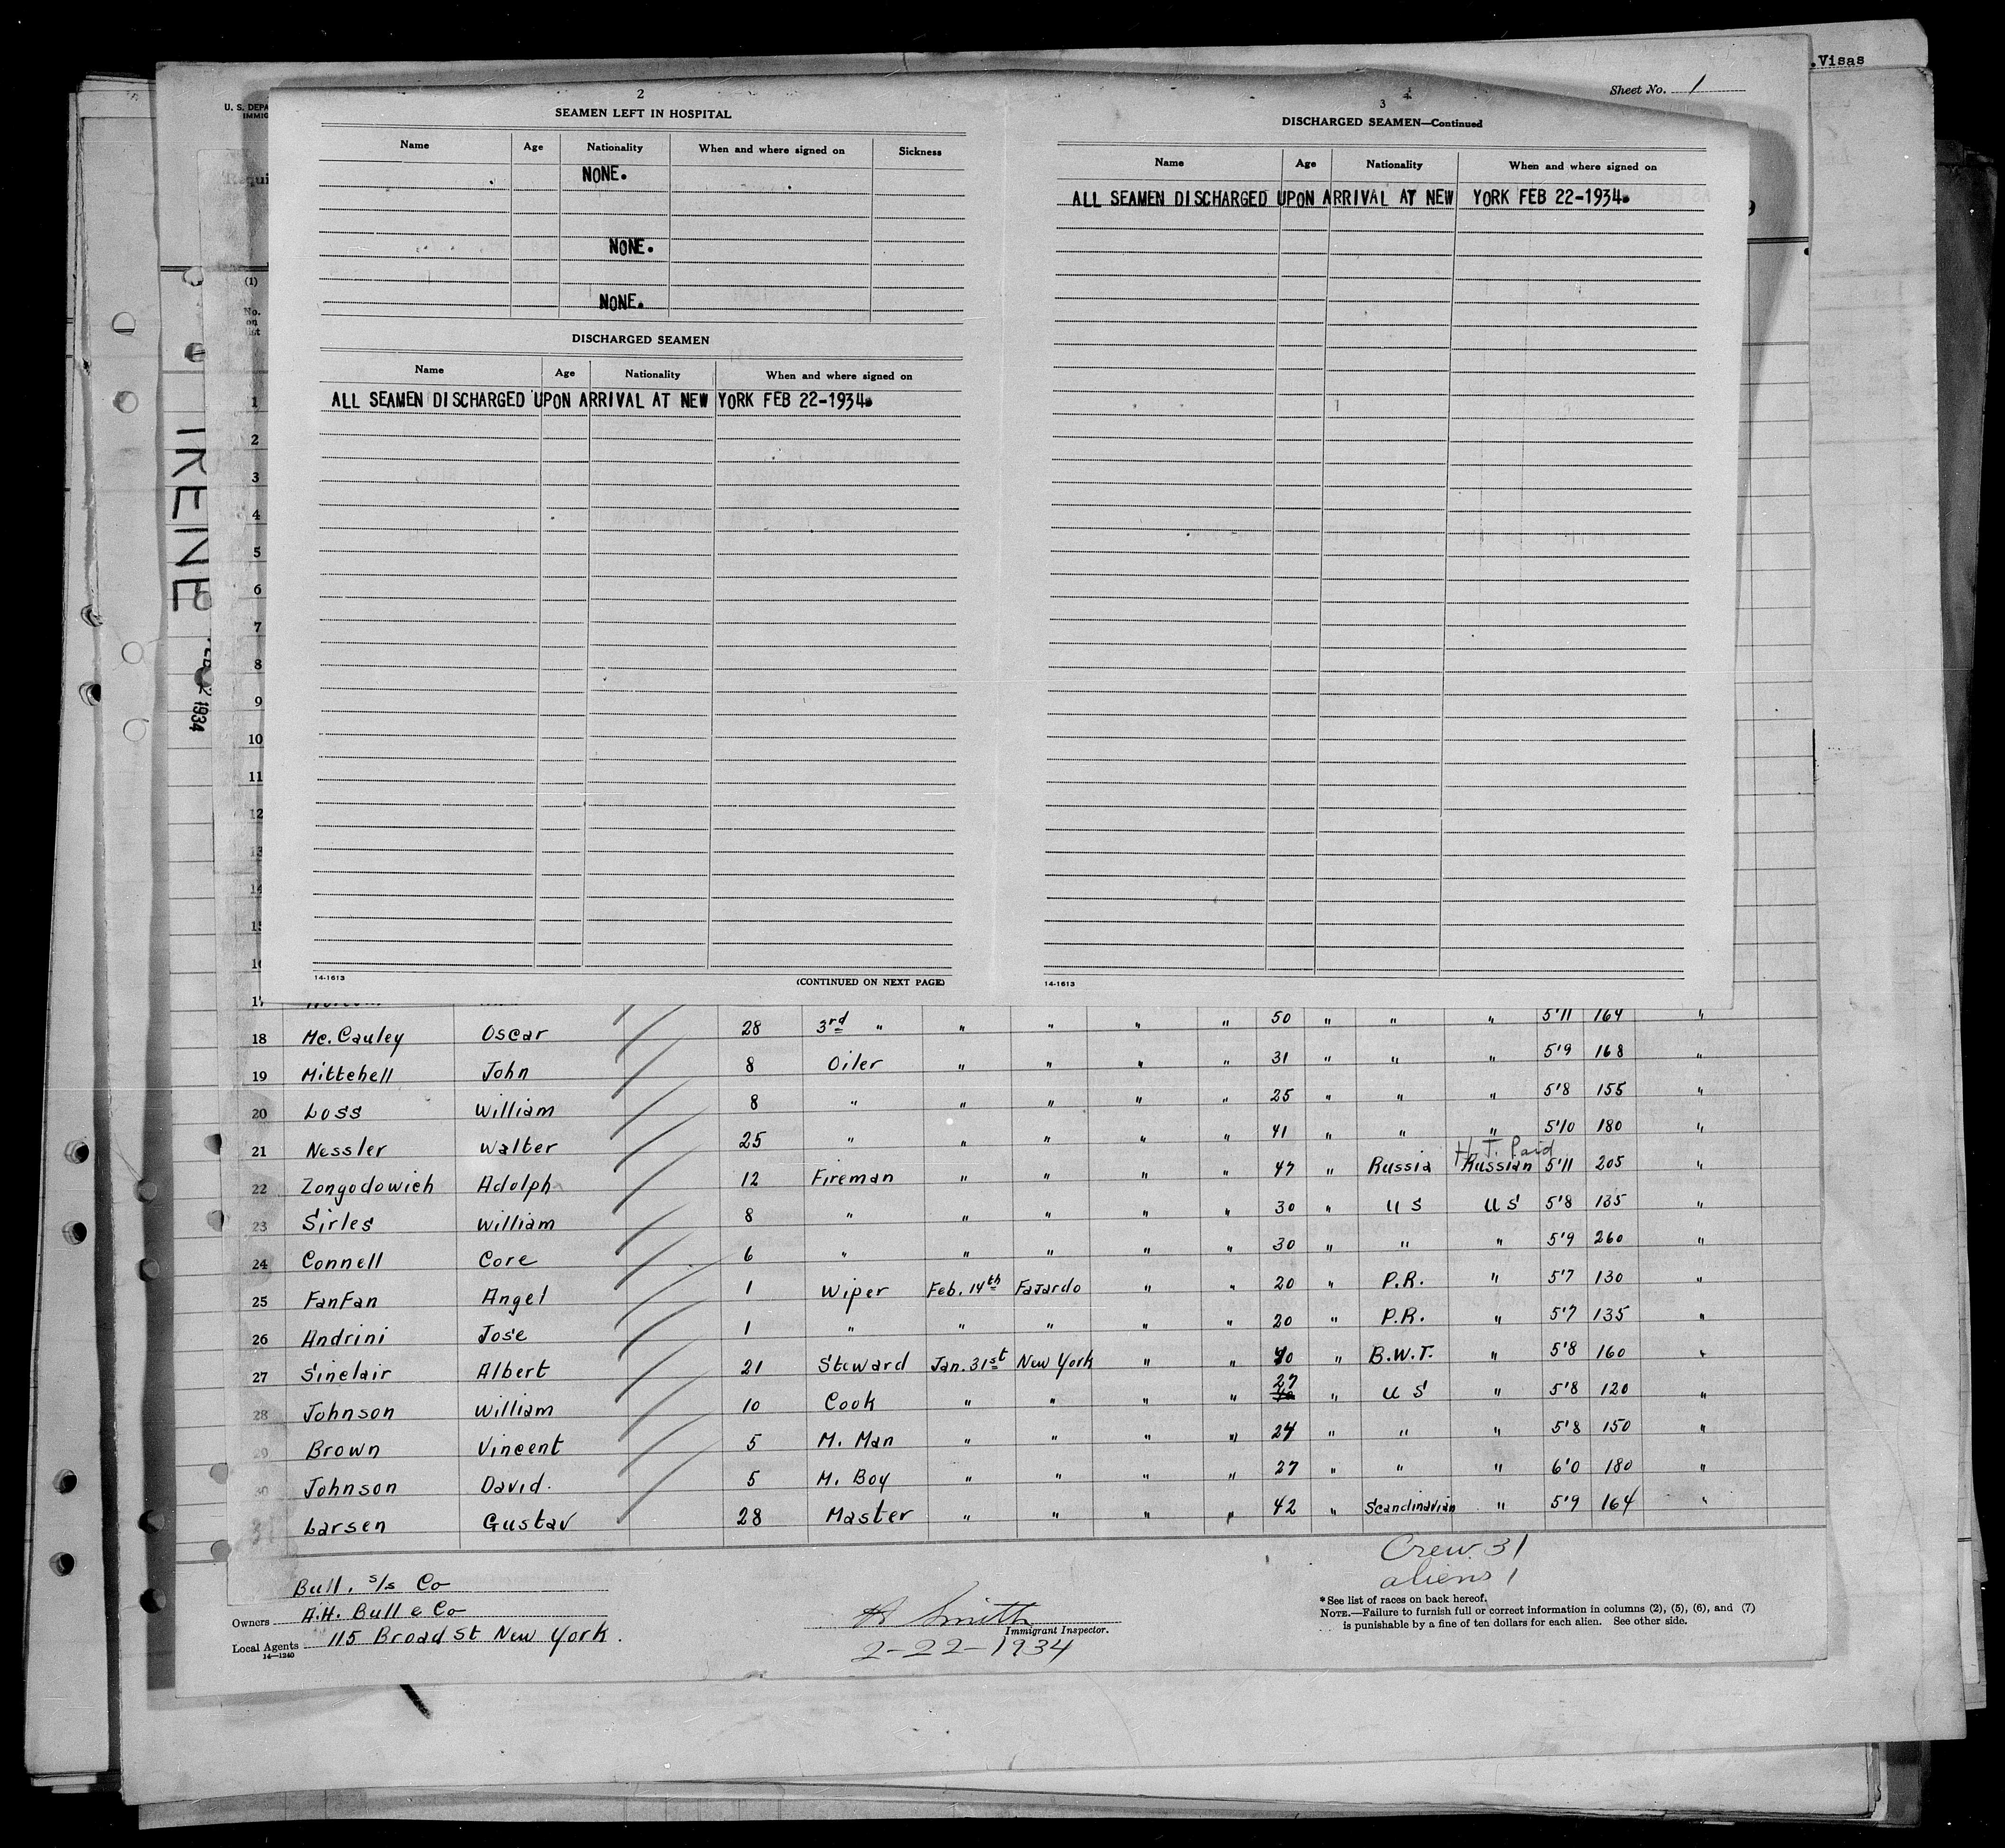 .Visas
Sheet No. 1
U. S. DEPA
IMMIG
2
SEAMEN LEFT IN HOSPITAL
Name Age Nationality When and where signed on Sickness
NONE.
NONE.
NONE.
DISCHARGED SEAMEN
Name Age Nationality When and where signed on
ALL SEAMEN DISCHARGED UPON ARRIVAL AT NEW YORK FEB 22-1934.
14-1613
(CONTINUED ON NEXT PAGE)
3
DISCHARGED SEAMEN—Continued
Name Age Nationality When and where signed on
ALL SEAMEN DISCHARGED UPON ARRIVAL AT NEW YORK FEB 22-1934.
14-1613
Requi
(1)
No.
on
list
IRENE
1934
1
2
3
4
5
6
7
8
9
10
11
12
13
14
15
16
17
18 Mc.Cauley Oscar 28 3rd " " " " " 50 " " " 5'11 164 "
19 Mittchell John 8 Oiler " " " " 31 " " " 5'9 168 "
20 Loss William 8 " " " " " 25 " " " 5'8 155 "
21 Nessler Walter 25 " " " " " 41 " " " 5'10 180 "
H.T. Paid
22 Zongodowich Adolph 12 Fireman " " " " 47 " Russia Russian 5'11 205 "
23 Sirles William 8 " " " " " 30 " U S U S 5'8 135 "
24 Connell Core 6 " " " " " 30 " " " 5'9 260 "
25 FanFan Angel 1 Wiper Feb. 14th Fajardo " " 20 " P.R. " 5'7 130 "
26 Andrini Jose 1 " " " " " 20 " P.R. " 5'7 135 "
27 Sinclair Albert 21 Steward Jan. 31st New York " " 40 " B.W.I. " 5'8 160 "
28 Johnson William 10 Cook " " " " 27 " U S " 5'8 120 "
29 Brown Vincent 5 M. Man " " " " 24 " " " 5'8 150 "
30 Johnson David. 5 M. Boy " " " " 27 " " " 6'0 180 "
31 Larsen Gustav 28 Master " " " " 42 " Scandinavian " 5'9 164 "
Crew 31
aliens 1
Bull, S/S Co
Owners A.H. Bull & Co
Local Agents 115 Broad St New York.
14—1240
Smith
Immigrant Inspector.
2-22-1934
*See list of races on back hereof.
NOTE.—Failure to furnish full or correct information in columns (2), (5), (6), and (7)
is punishable by a fine of ten dollars for each alien. See other side.